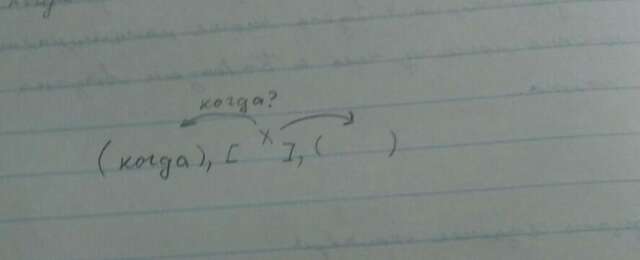 когда?
(когда), [ x ], ( )